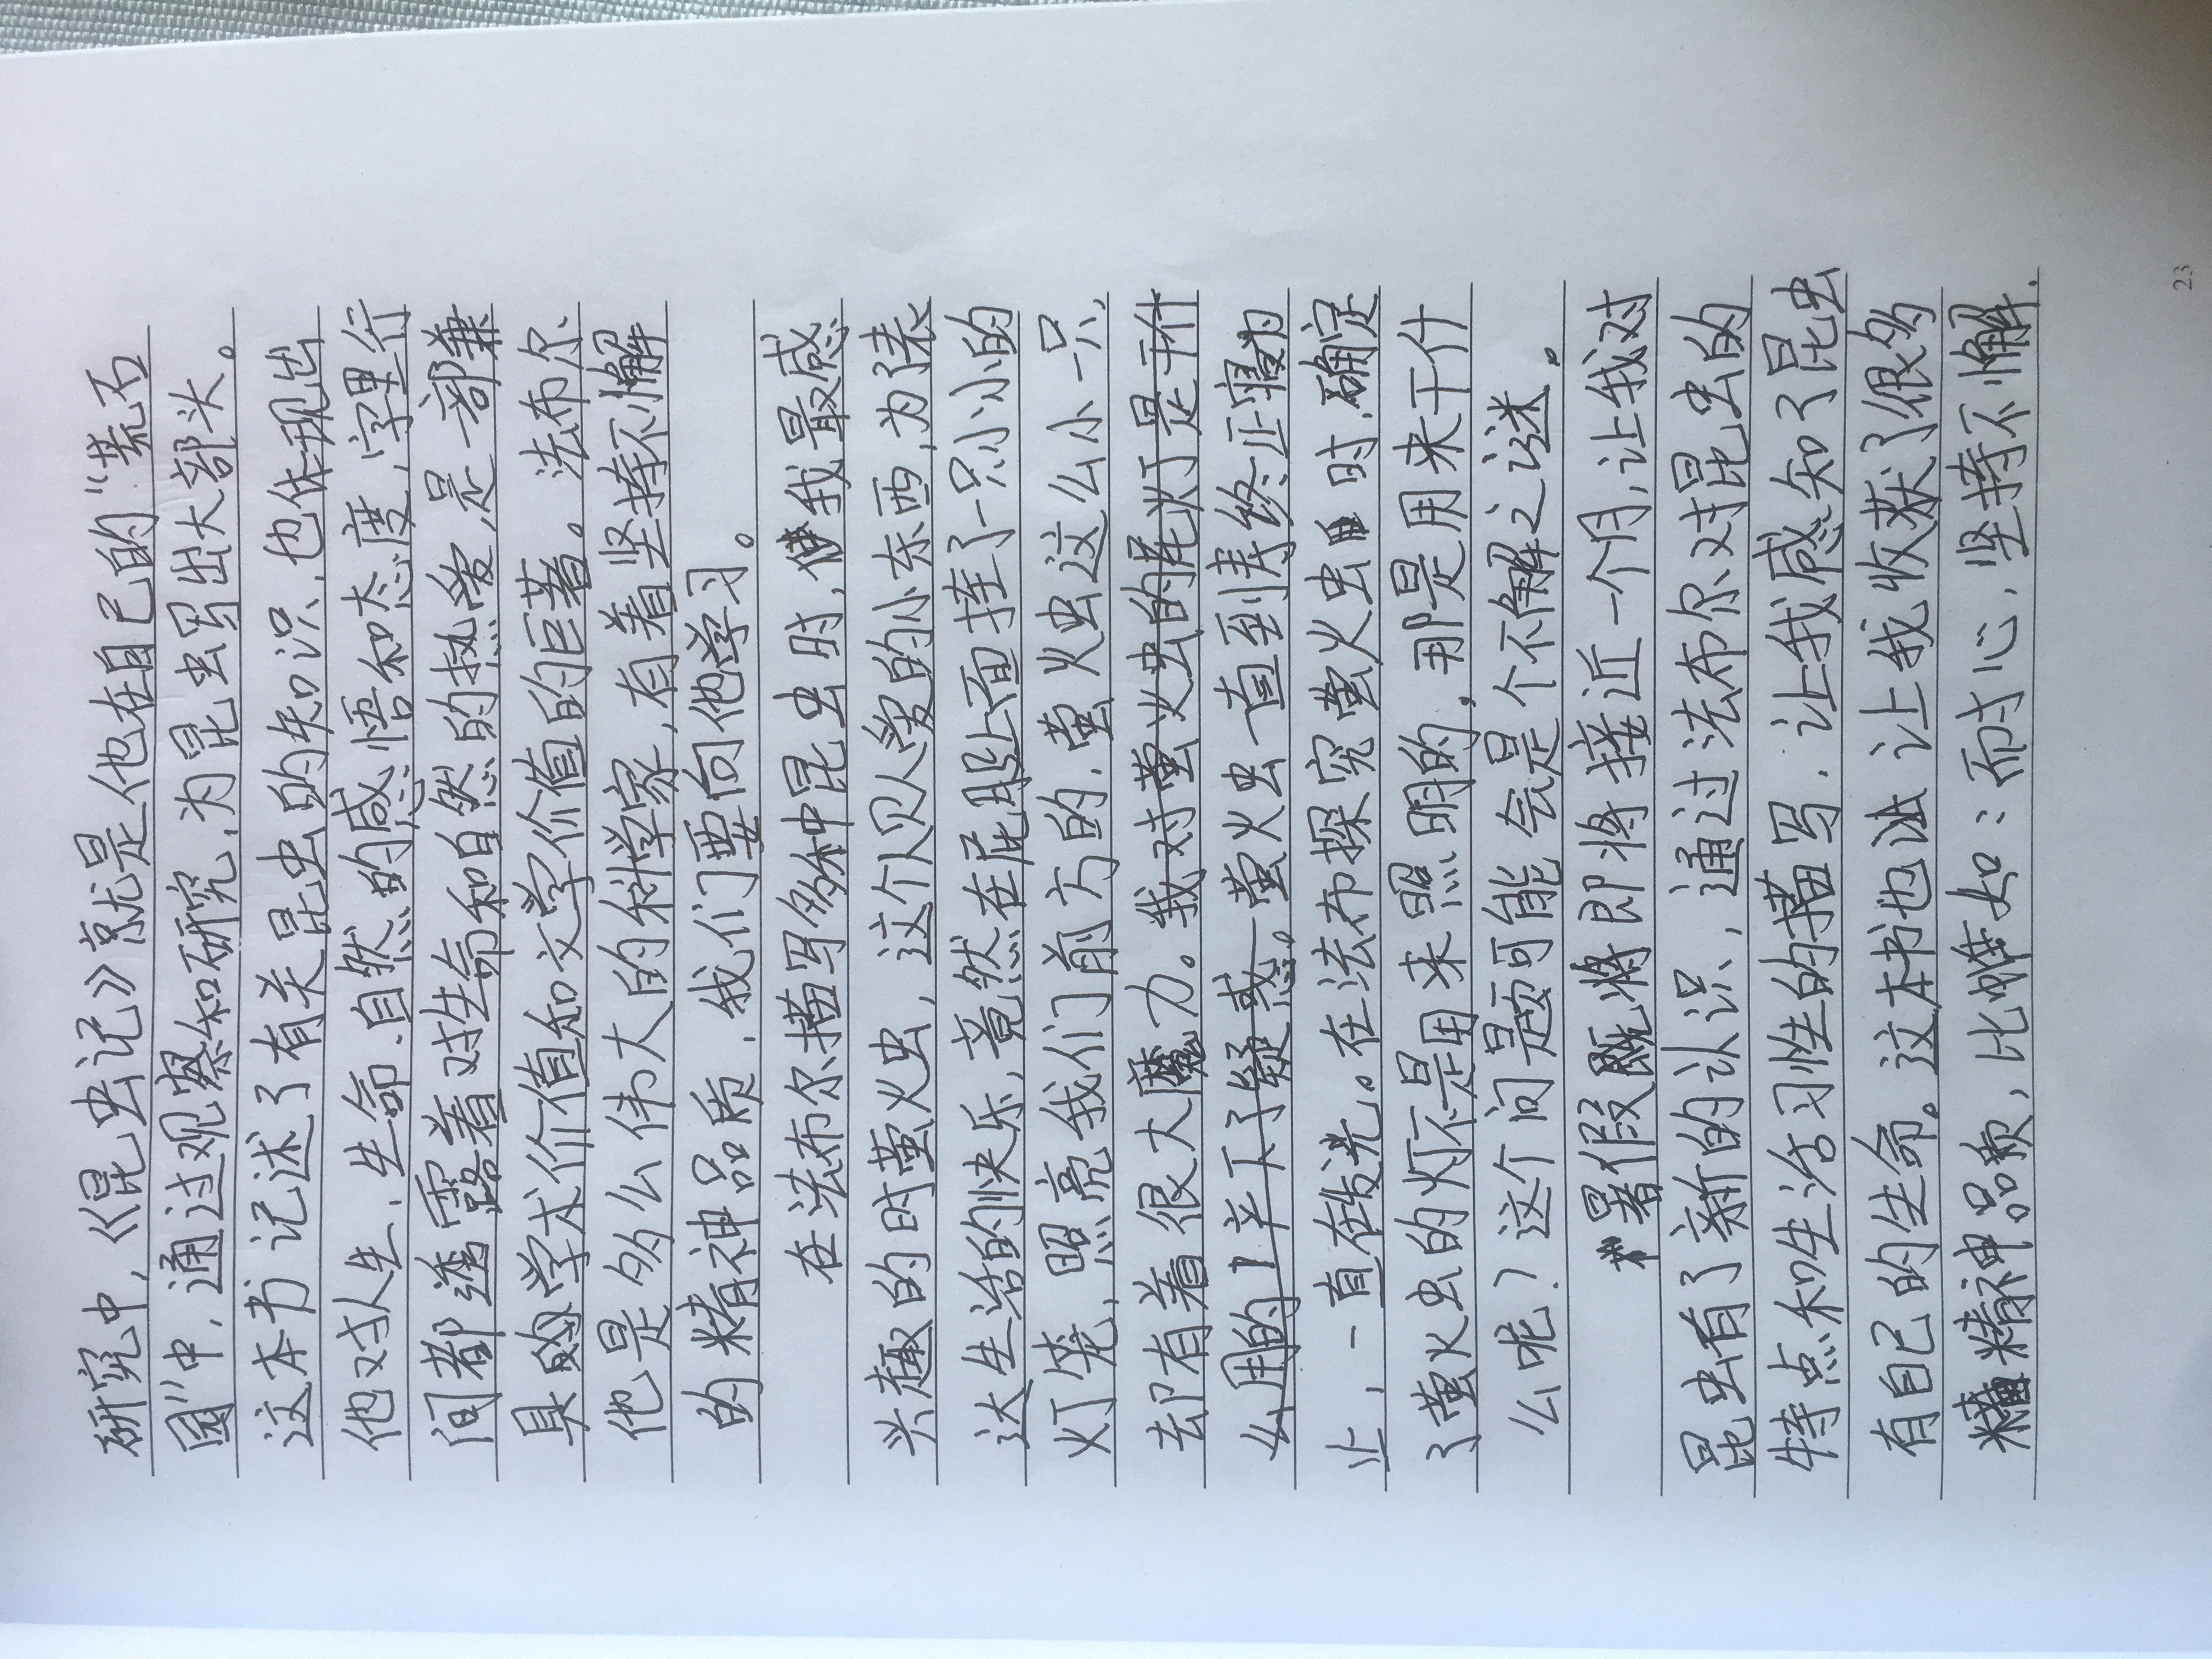 研究中，《昆虫记》就是他在自己的“荒石
园”中，通过观察和研究，为昆虫写出大部头。
这本书记述了有关昆虫的知识，也体现出
他对人生、生命、自然的感悟和态度，字里行
间都透露着对生命和自然的热爱，是一部兼
具的学术价值和文学价值的巨著。法布尔
他是多么伟大的科学家，有着坚持不懈
的精神品质，我们要向他学习。
在法布尔描写多种昆虫时，使我最感
兴趣的时萤火虫，这个人见人爱的小东西，为了表
达生活的快乐，竟然在屁股上面挂了一只小小的
灯笼，照亮我们前方的，萤火虫这么小一只，
却有着很大魔力。我对萤火虫的尾灯是干什
么用的
疑惑。萤火虫一直到寿终正寝为
止，一直在发光。在法布探究萤火虫时，确定
了萤火虫的灯不是用来照明的，那是用来干什
么呢？这个问题可能会是个不解之谜。
暑假既将即将接近一个月，让我对
昆虫有了新的认识，通过法布尔对昆虫的
特点和生活习性的描写，让我感知了昆虫
有自己的生命。这本书也让我收获了很多
精神品质，比如：耐心，坚持不懈，
23